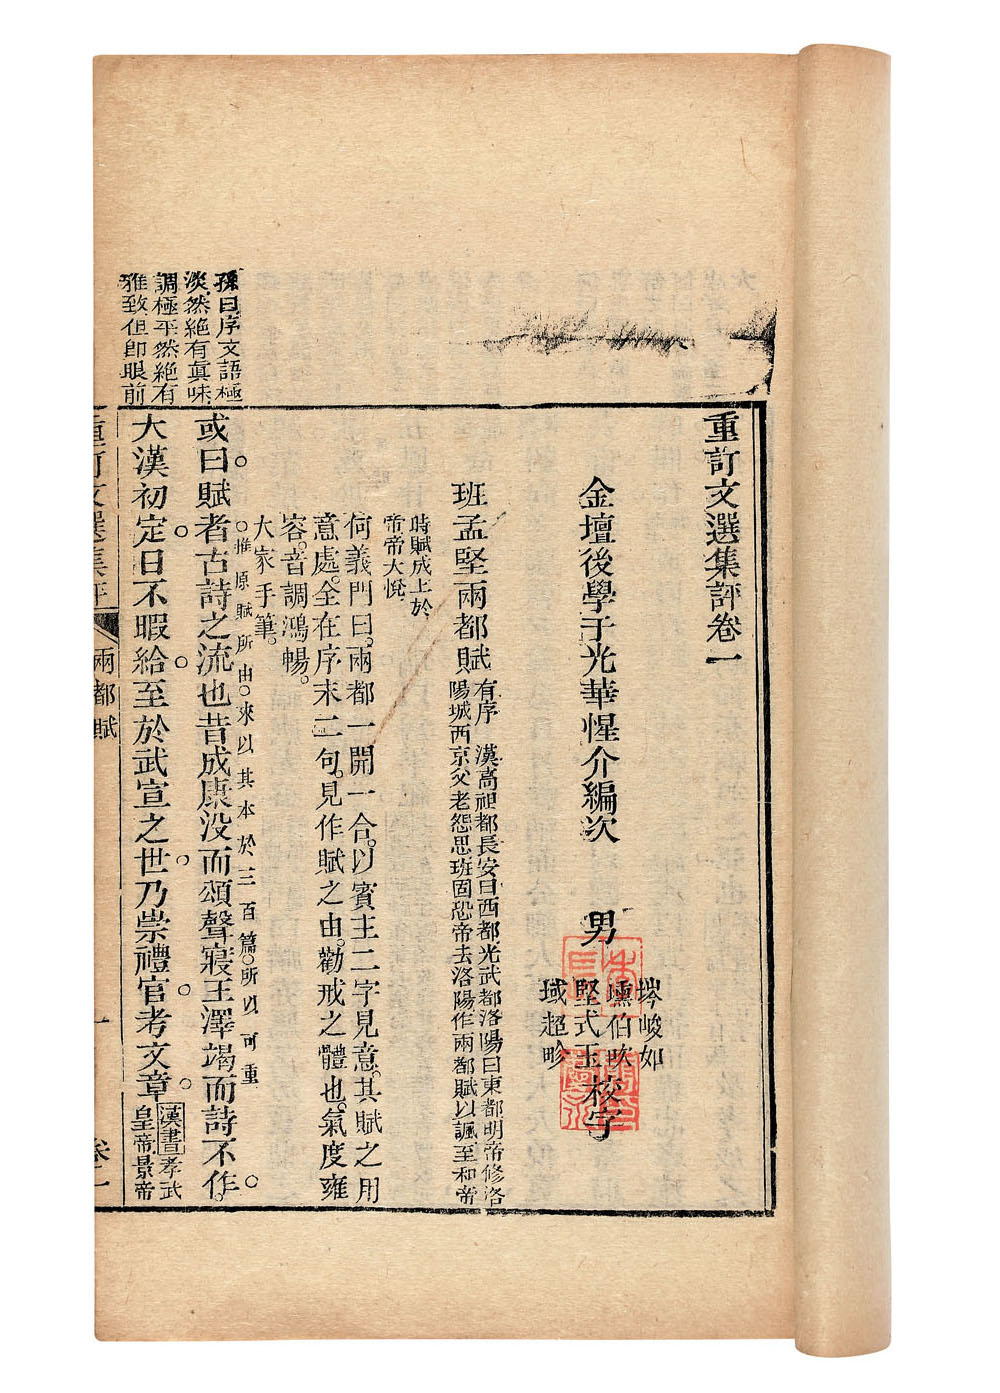 重訂文選集評卷一
金壇後學于光華惺介編次
男
埁峻如
壎伯吹
堅式玉
域超畛
校字
班孟堅兩都賦
有序 漢高祖都長安曰西都光武都洛陽曰東都明帝修洛
陽城西京父老怨思班固恐帝去洛陽作兩都賦以諷至和帝
時賦成上於
帝帝大悅
何義門曰兩都一開一合以賓主二字見意其賦之用
意處全在序末二句見作賦之由勸戒之體也氣度雍
容音調鴻暢
大家手筆
推原賦所由來以其本於三百篇所以可重
或曰賦者古詩之流也昔成康没而頌聲寢王澤竭而詩不作
大漢初定日不暇給至於武宣之世乃崇禮官考文章
漢書孝武
皇帝景帝
孫曰序文語極
淡然絶有眞味
調極平然絶有
雅致但卽眼前
重訂文選集評
兩都賦
一
卷一